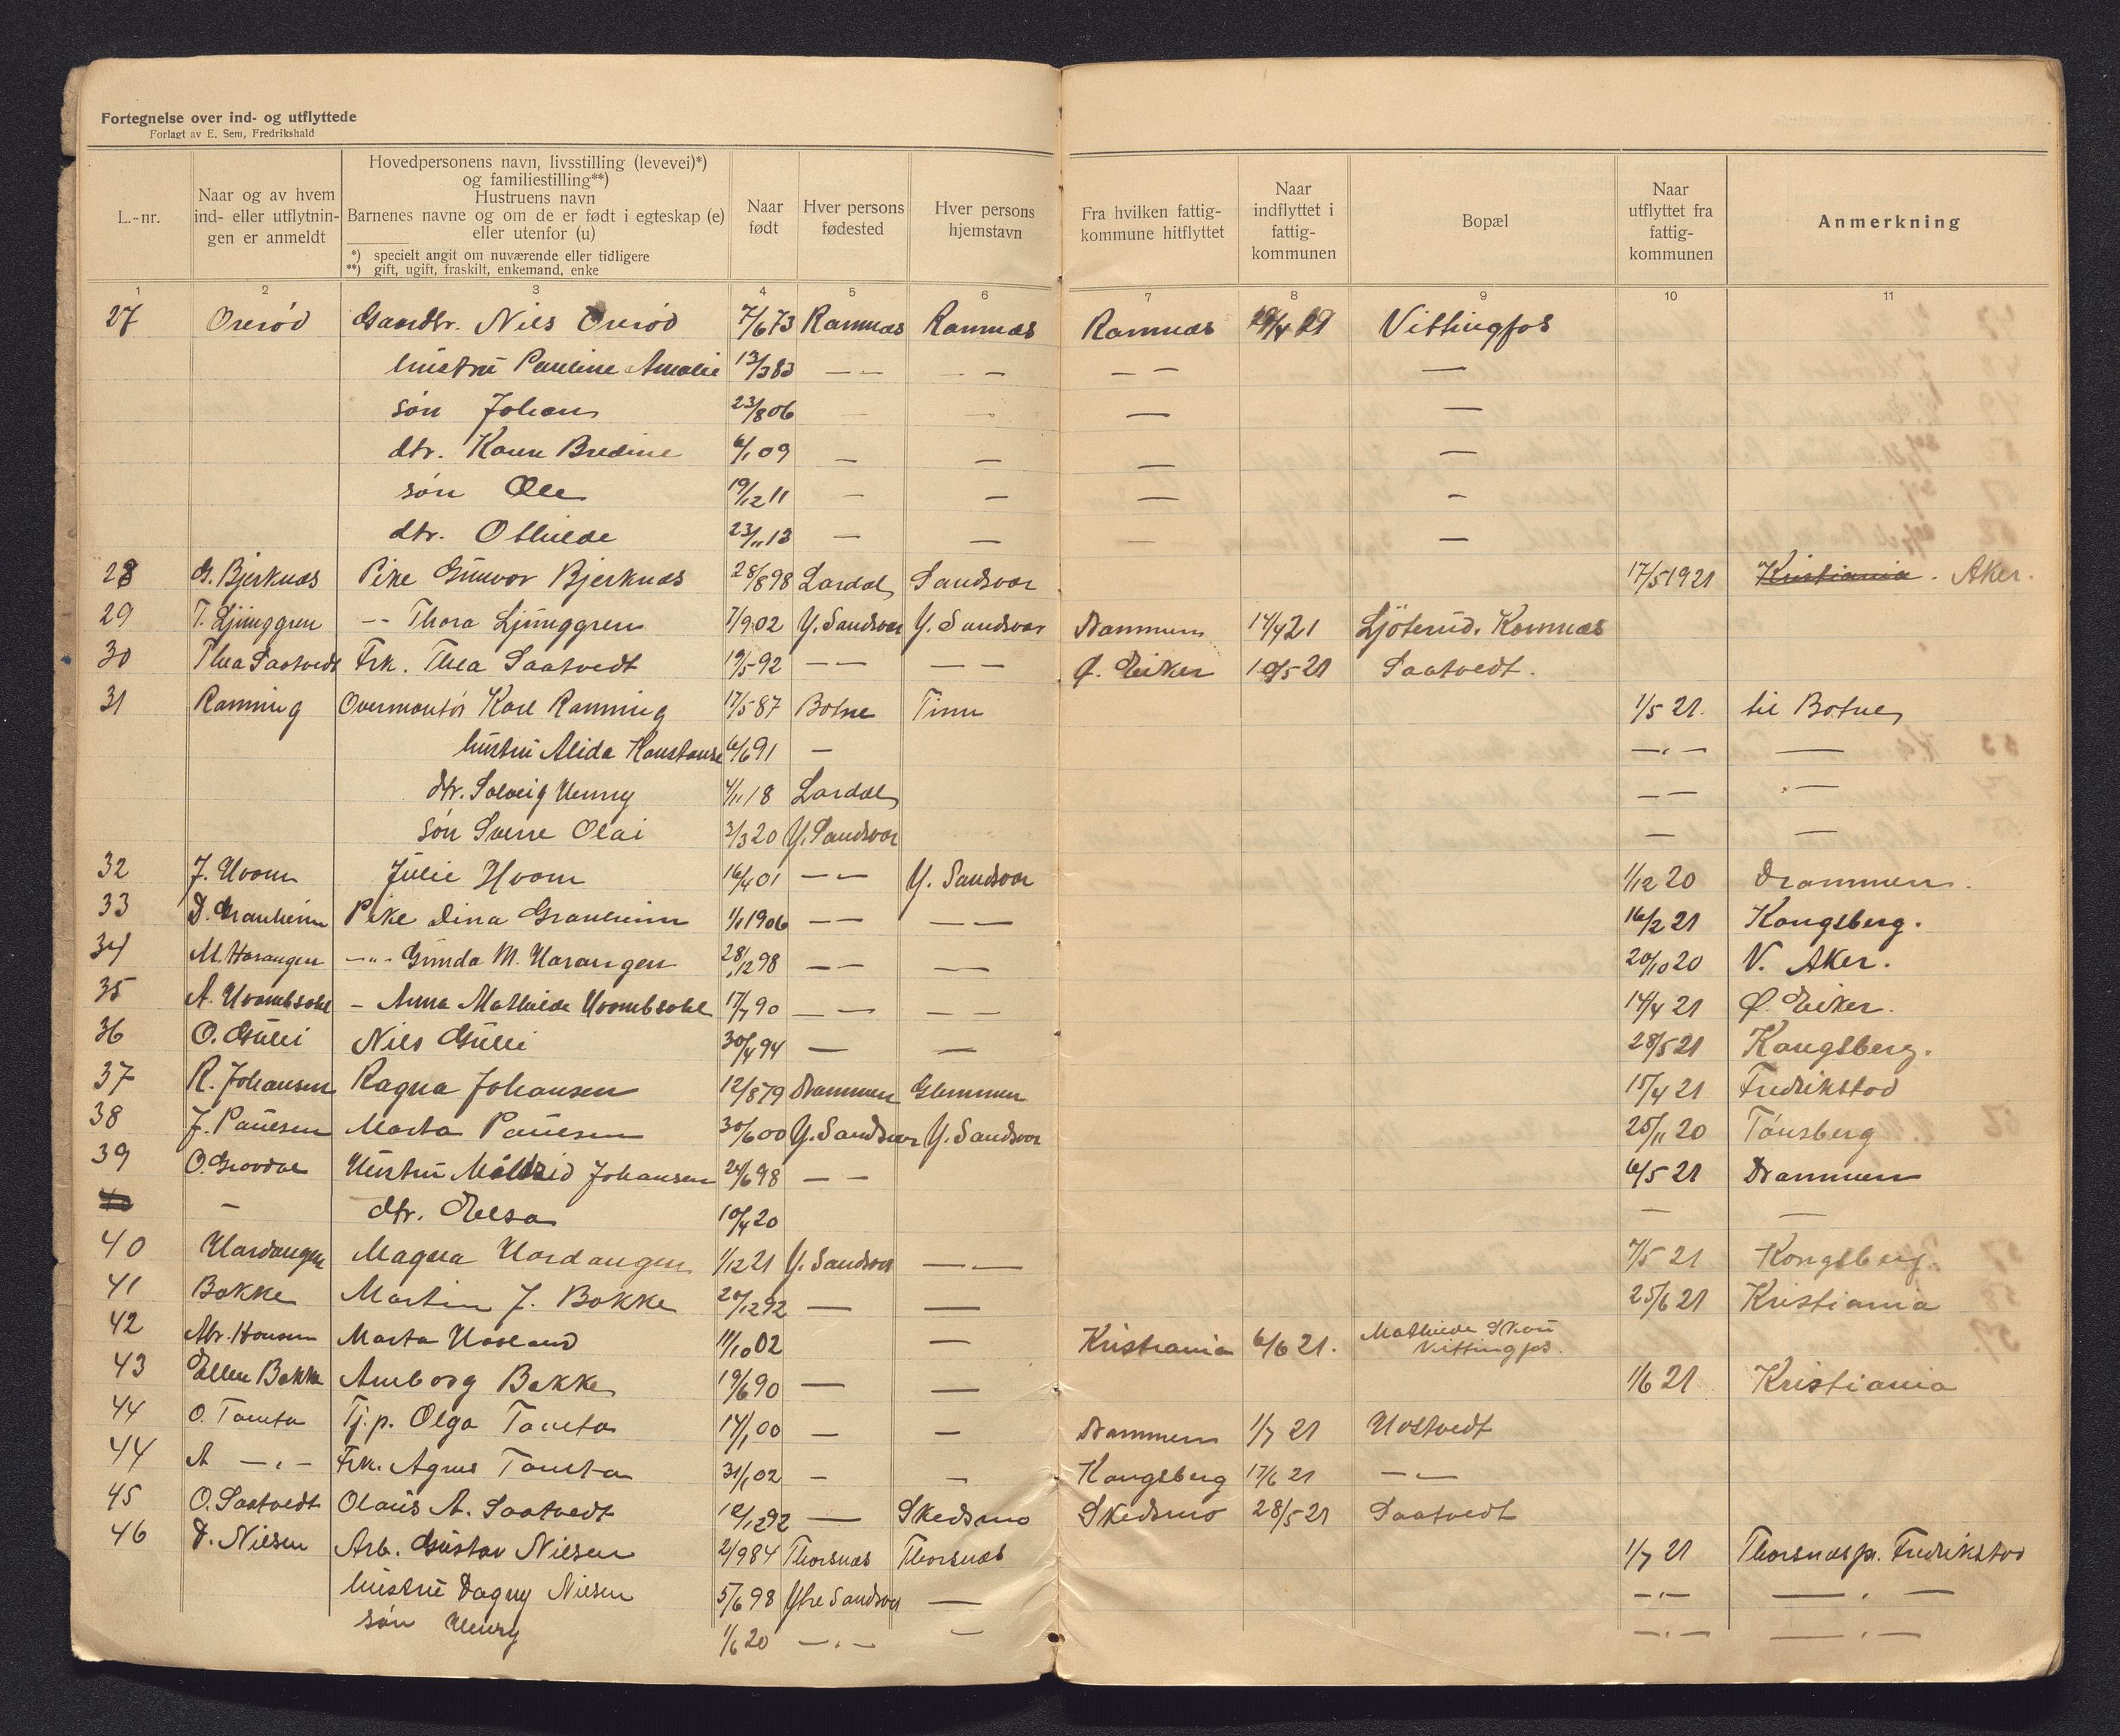 Fortegnelse over ind- og utflyttede
Forlagt av E. Sem, Fredrikshald
L.-nr.
Naar og av hvem
ind- eller utflytnin-
gen er anmeldt
Hovedpersonens navn, livsstilling (levevei)*)
og familiestilling**)
Hustruens navn
Barnenes navne og om de er født i egteskap (e)
eller utenfor (u)
*) specielt angit om nuværende eller tidligere
**) gift, ugift, fraskilt, enkemand, enke
Naar
født
Hver persons
fødested
Hver persons
hjemstavn
Fra hvilken fattig-
kommune hitflyttet
Naar
indflyttet i
fattig-
kommunen
Bopæl
Naar
utflyttet fra
fattig-
kommunen
Anmerkning
1 2 3 4 5 6 7 8 9 10 11
27 Orerød Gaardbr. Nils Orerød 7/6 73 Ramnæs Ramnæs Ramnæs 29/4 21 Vittingfos
hustru Pauline Amalie 13/3 83 — — — — — —
søn Johan 23/8 06 — — — —
dtr. Karen Bredine 6/1 09 — — — —
søn Ole 19/12 11 — — — —
dtr. Othilde 23/11 13 — — — —
28 G. Bjerknæs Pike Gunvor Bjerknæs 28/8 98 Lardal Sandsvær 17/5 1921 Kristiania. Aker.
29 T. Ljunggren -- Thora Ljunggren 7/9 02 Y. Sandsvær Y. Sandsvær Drammen 14/4 21 Ljøterud. Komnæs
30 Thea Saatvedt Frk. Thea Saatvedt 19/5 92 — — — — Ø. Eiker 10/5 21 Saatvedt.
31 Ramming Overmontør Karl Ramming 17/5 87 Botne Tinn 1/5 21. til Botne
hustru Alida Konstanse 6/6 91 — —"— —
dtr. Solveig Henny 4/11 18 Lardal — — "—
søn Sverre Olai 3/3 20 Y. Sandsvær — —
32 J. Hvam Julie Hvam 16/4 01 — — Y. Sandsvær 1/12 20 Drammen.
33 D. Granheim Pike Dina Granheim 1/1 1906 — — — — 16/2 21 Kongsberg.
34 M. Harangen —"— Gunda M. Harangen 28/12 98 — — — — 20/10 20 V. Aker.
35 A. Hvambsahl — Anna Mathilde Hvambsahl 17/7 90 — — — — 14/4 21 Ø. Eiker.
36 O. Gulli Nils Gulli 30/4 94 — — 28/5 21 Kongsberg.
37 R. Johansen Ragna Johansen 12/8 79 Drammen Glemmen 15/4 21 Fredrikstad
38 J. Paulsen Marta Paulsen 30/6 00 Y. Sandsvær Y. Sandsvær 25/11 20 Tønsberg
39 O. Grovdal Hustru Målfrid Johansen 24/6 98 — — 6/5 21 Drammen
— dtr. Elsa 10/4 20 — —
40 Hardangen Magna Hardangen 1/12 21 Y. Sandsvær — — 7/5 21 Kongsberg.
41 Bakke Martin J. Bakke 20/12 92 — — 25/6 21 Kristiania
42 Abr. Hansen Marta Haslund 11/10 02 — Kristiania 6/6 21. Mathilde Skau
Vittingfos.
43 Ellen Bakke Amborg Bakke 19/6 90 — — 1/6 21 Kristiania
44 O. Tamta Tj.p. Olga Tamta 14/1 00 — — Drammen 1/7 21 Hostvedt
44 A —"— Frk. Agnes Tamta 31/1 02 — — Kongsberg 17/6 21 — —
45 O. Saatvedt Olaus A. Saatvedt 12/12 92 — Skedsmo Skedsmo 28/5 21 Saatvedt
46 D. Nilsen Arb. Gustav Nilsen 2/9 84 Thorsnæs Thorsnæs 1/7 21 Thorsnæs pr. Fredrikstad
hustru Dagny Nilsen 5/6 98 Ytre Sandsvær — —"— —"—
søn Henry 1/6 20 —"— — —"— —"—